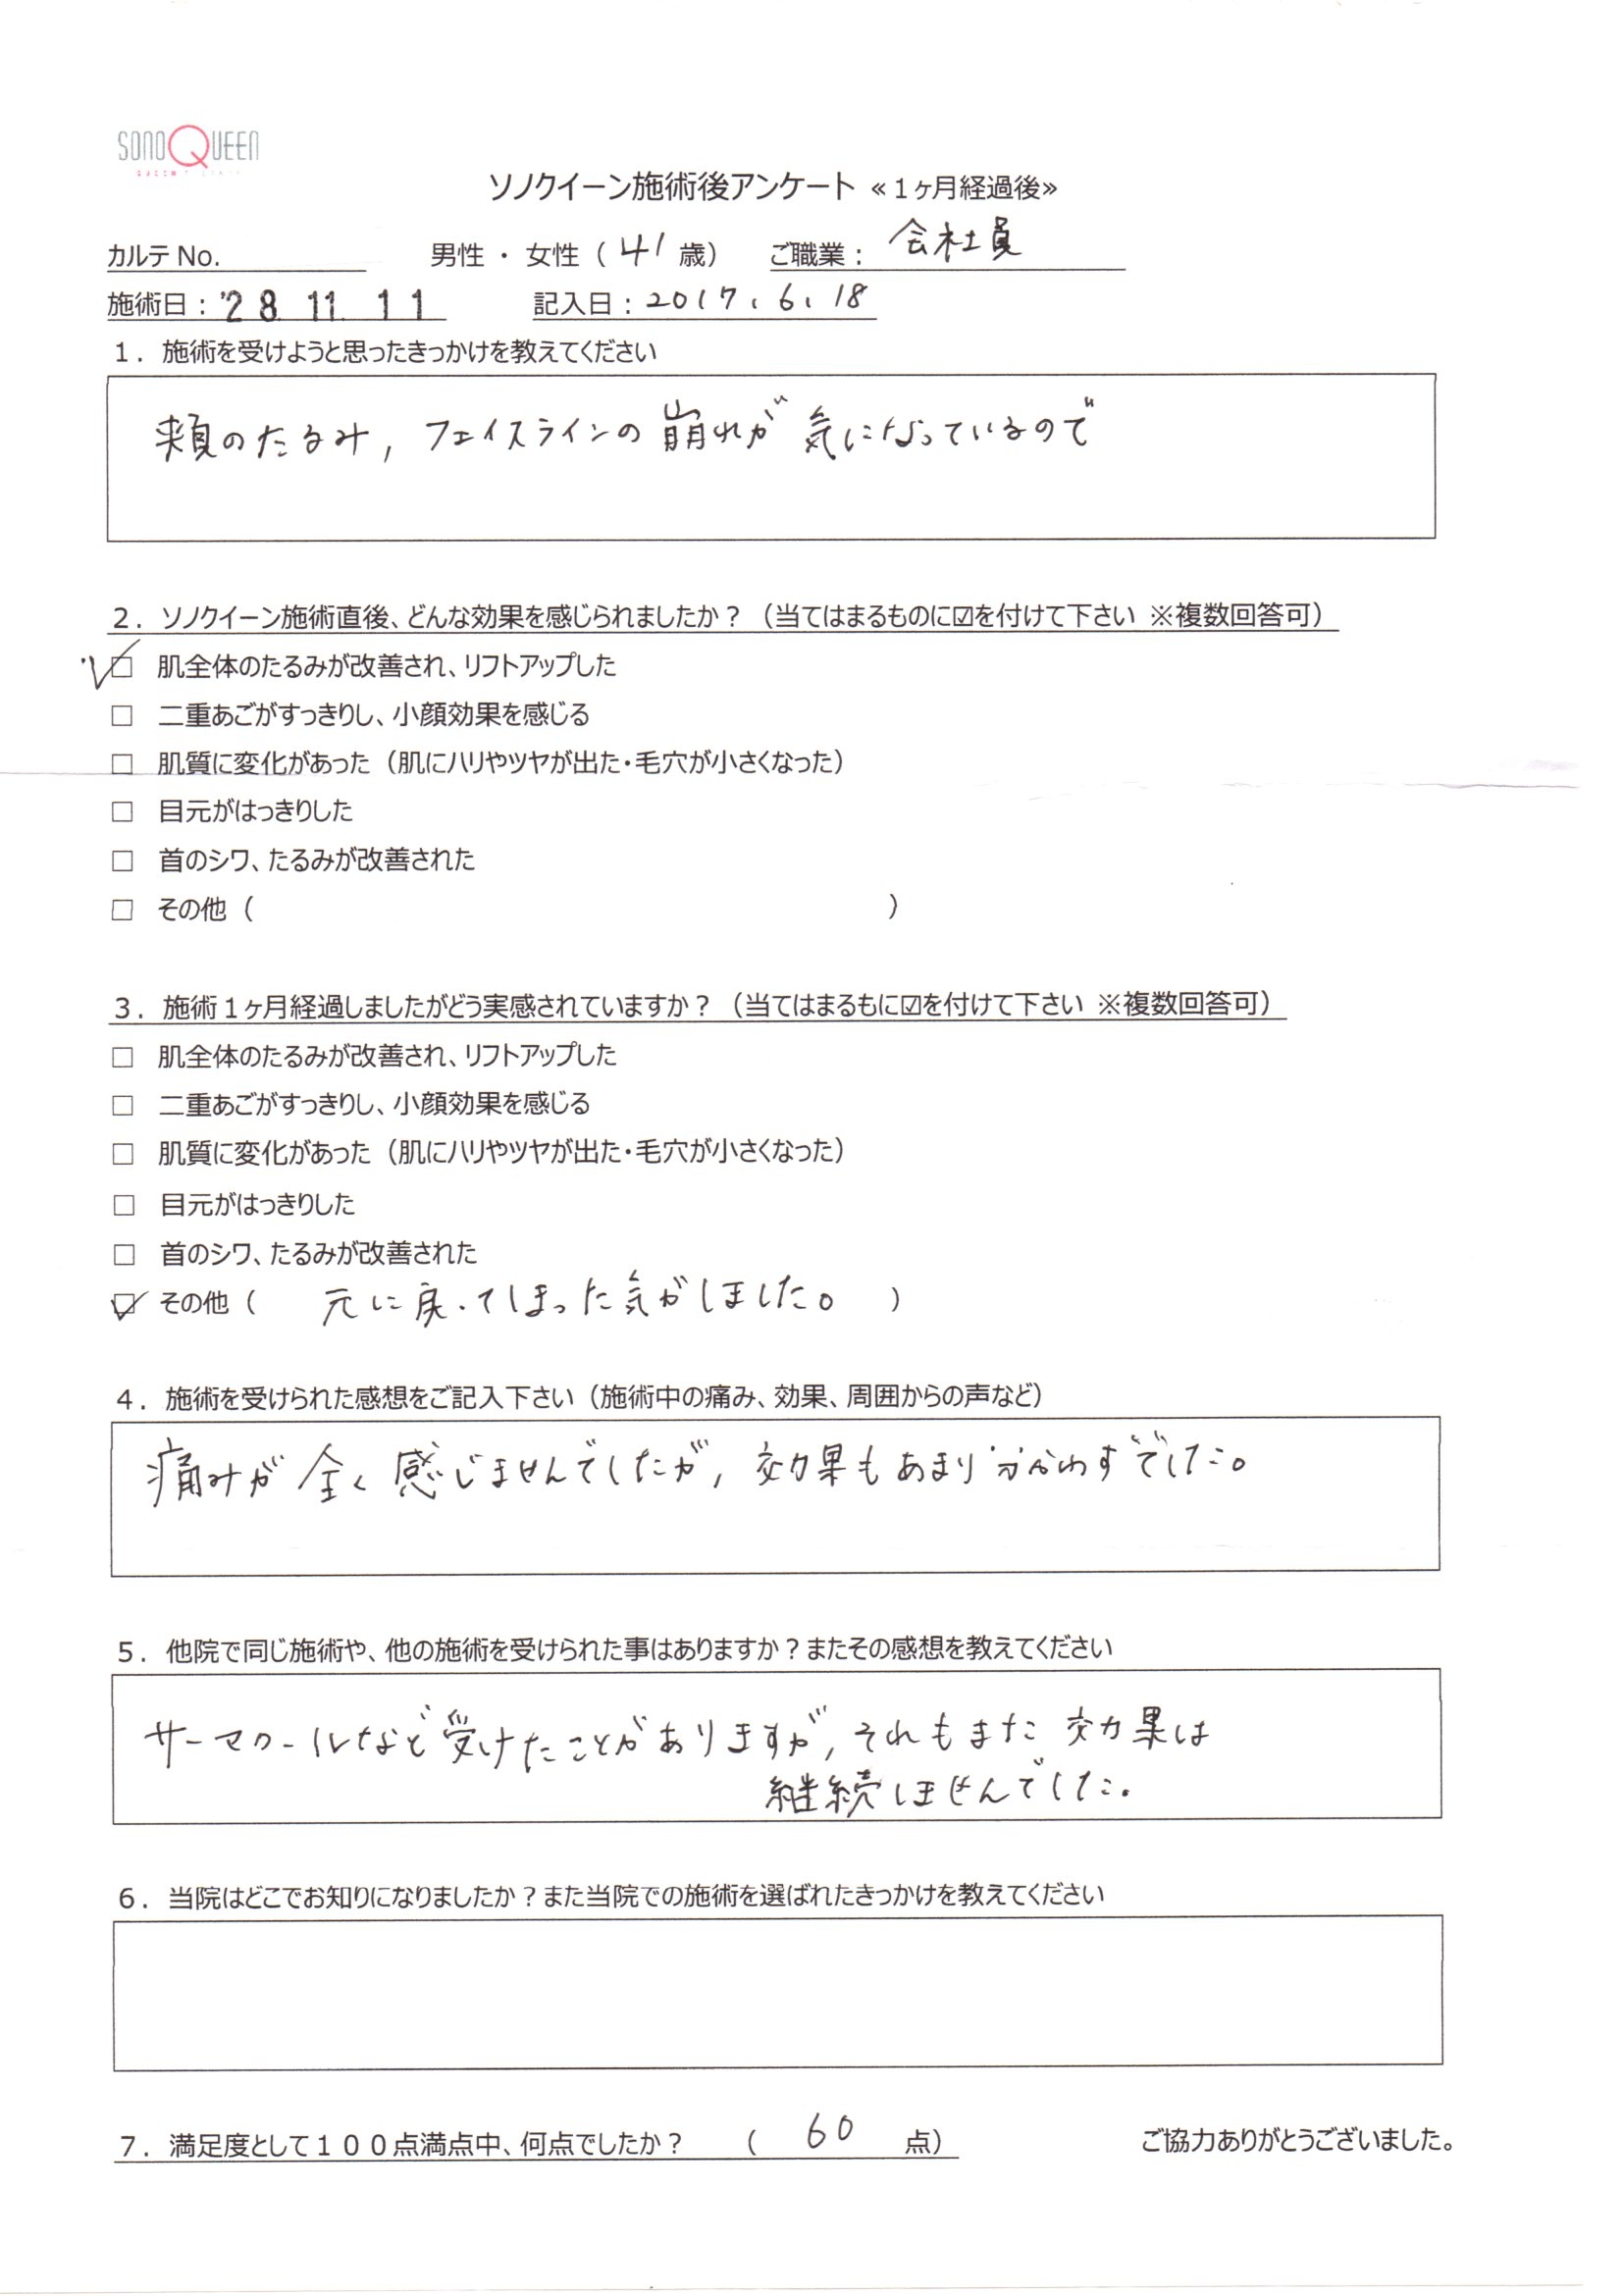 SONOQUEEN
ソノクイーン施術後アンケート ≪1ヶ月経過後≫
カルテ No. 男性 ・ 女性 ( 41 歳) ご職業 : 会社員
施術日 : '28 11 11 記入日 : 2017.6.18
1. 施術を受けようと思ったきっかけを教えてください
頬のたるみ, フェイスラインの崩れが気になっているので
2. ソノクイーン施術直後、どんな効果を感じられましたか？（当てはまるものに☑を付けて下さい ※複数回答可）
☑ 肌全体のたるみが改善され、リフトアップした
□ 二重あごがすっきりし、小顔効果を感じる
□ 肌質に変化があった（肌にハリやツヤが出た・毛穴が小さくなった）
□ 目元がはっきりした
□ 首のシワ、たるみが改善された
□ その他（ ）
3. 施術1ヶ月経過しましたがどう実感されていますか？（当てはまるもに☑を付けて下さい ※複数回答可）
□ 肌全体のたるみが改善され、リフトアップした
□ 二重あごがすっきりし、小顔効果を感じる
□ 肌質に変化があった（肌にハリやツヤが出た・毛穴が小さくなった）
□ 目元がはっきりした
□ 首のシワ、たるみが改善された
☑ その他（ 元に戻ってしまった気がしました。 ）
4. 施術を受けられた感想をご記入下さい（施術中の痛み、効果、周囲からの声など）
痛みが全く感じませんでしたが, 効果もあまり分からずでした。
5. 他院で同じ施術や、他の施術を受けられた事はありますか？またその感想を教えてください
サーマクールなど受けたことがありますが, それもまた効果は
継続しませんでした.
6. 当院はどこでお知りになりましたか？また当院での施術を選ばれたきっかけを教えてください
7. 満足度として１００点満点中、何点でしたか？ ( 60 点) ご協力ありがとうございました。